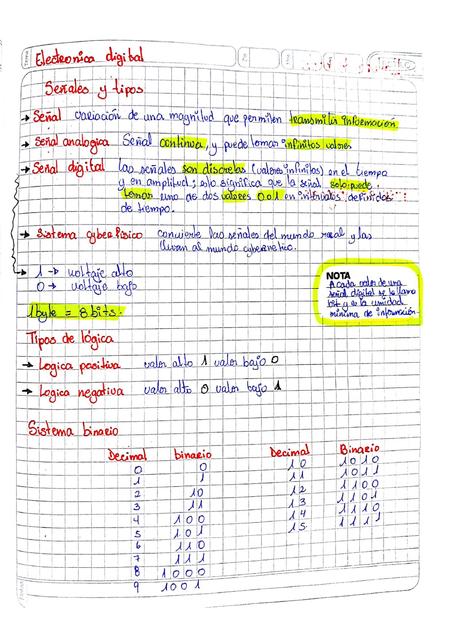 Electronica digital
Señales y tipos
→ Señal variación de una magnitud que permiten transmitir información.
→ Señal analogica Señal continua, y puede tomar infinitos valores
→ Señal digital las señales son discretas (valores finitos) en el tiempo
y en amplitud; esto significa que la señal solo puede
tomar uno de dos valores 0 o 1 en intervalos definidos
de tiempo.
→ Sistema cyberfisico convierte las señales del mundo real y las
llevan al mundo cybernetico.
1 → voltaje alto
0 → voltaje bajo
1 byte = 8 bits.
NOTA
A cada valor de una
señal digital se le llama
bit y es la unidad
minima de información.
Tipos de lógica
→ Logica positiva valor alto 1 valor bajo 0
→ Logica negativa valor alto 0 valor bajo 1
Sistema binario
Decimal binario
0 0
1 1
2 10
3 11
4 100
5 101
6 110
7 111
8 1000
9 1001
Decimal Binario
10 1010
11 1011
12 1100
13 1101
14 1110
15 1111